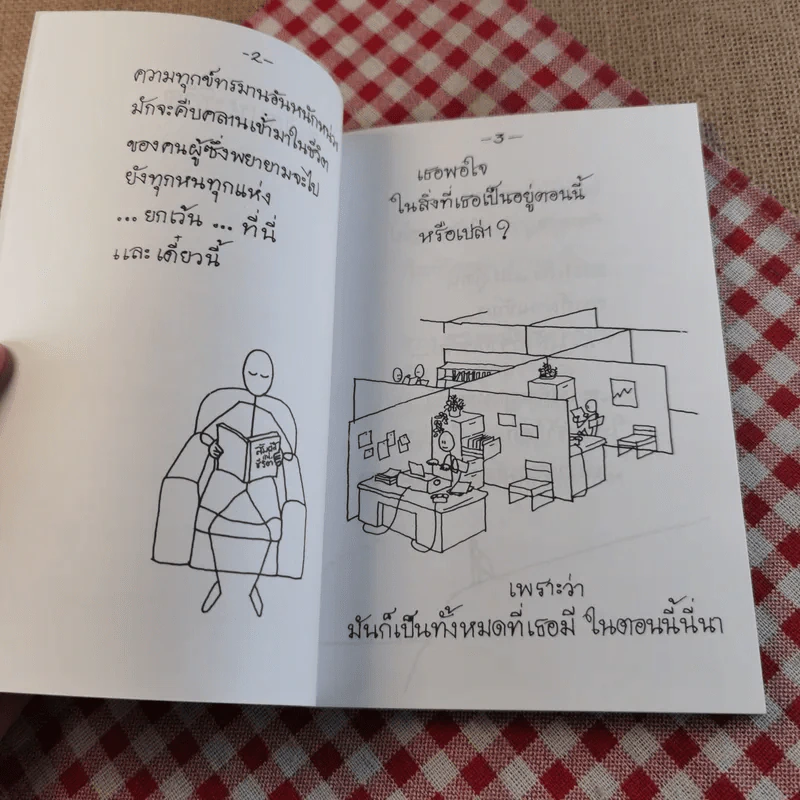 -2-
ความทุกข์ทรมานอันหนักหน่วง
มักจะคืบคลานเข้ามาในชีวิต
ของคนผู้ซึ่งพยายามจะไป
ยังทุกหนทุกแห่ง
... ยกเว้น ... ที่นี่
และ เดี๋ยวนี้
-3-
เธอพอใจ
ในสิ่งที่เธอเป็นอยู่ตอนนี้
หรือเปล่า ?
เพราะว่า
มันก็เป็นทั้งหมดที่เธอมี ในตอนนี้นี่นา